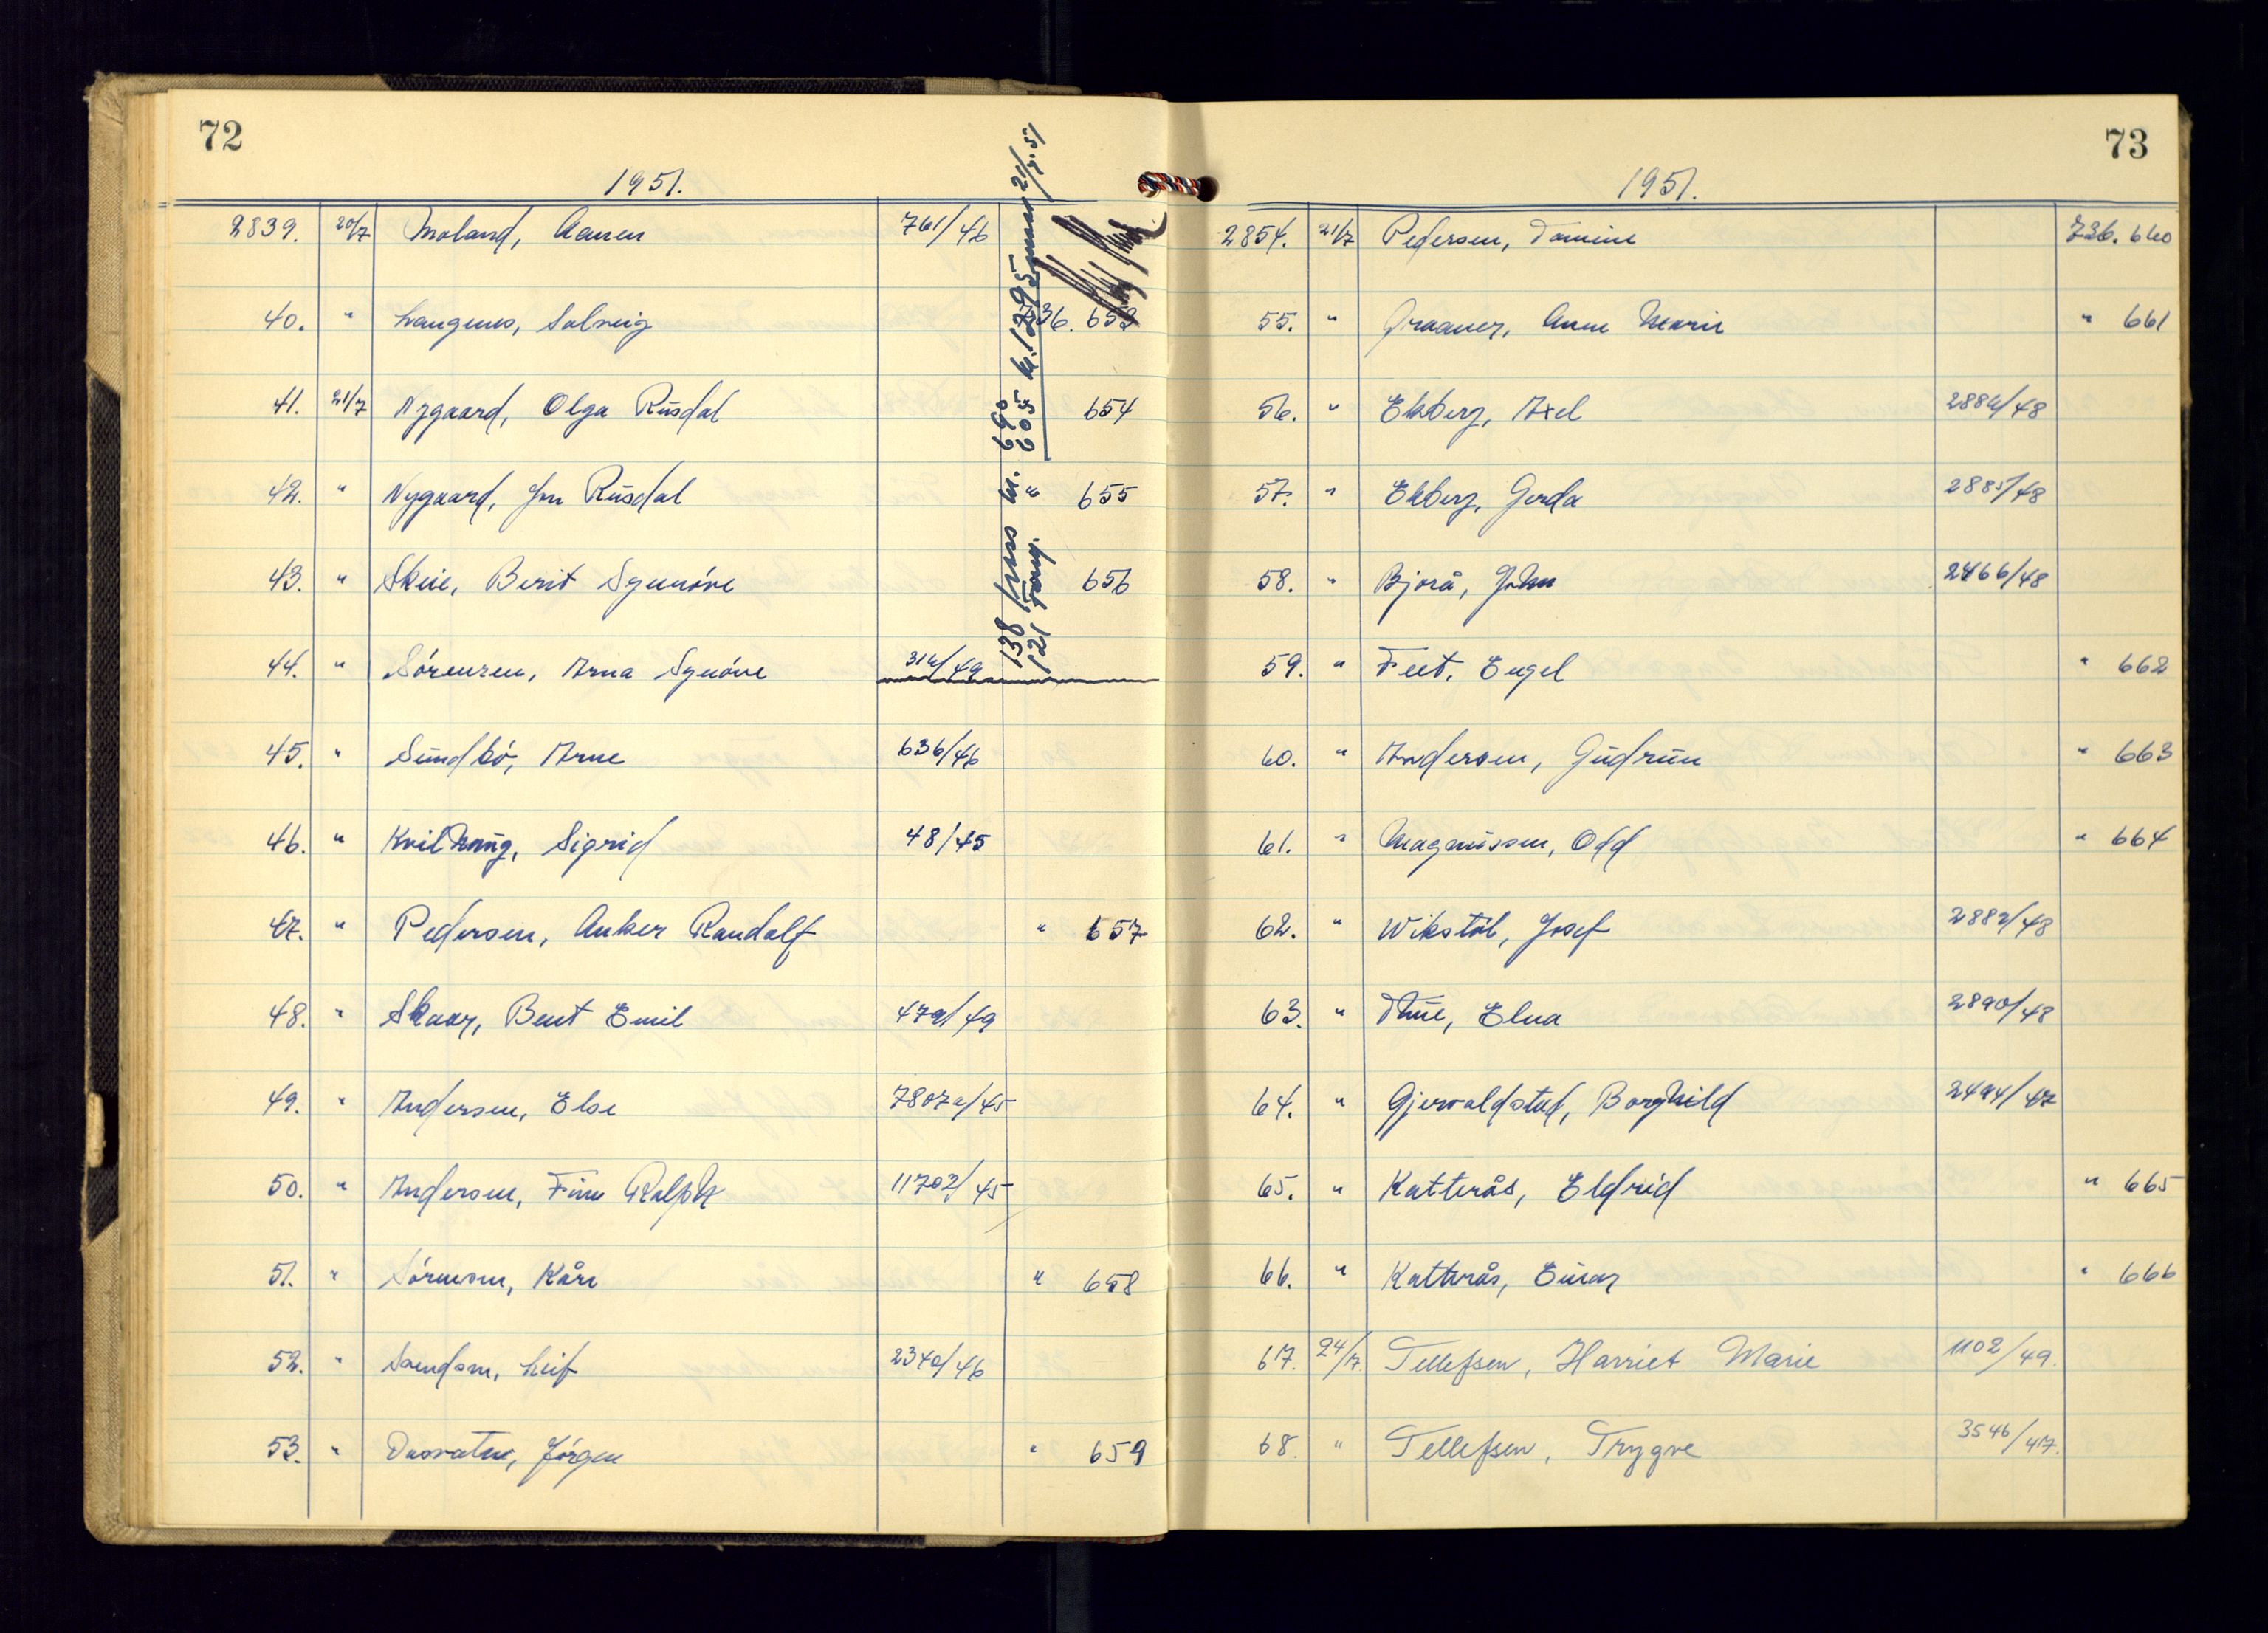 72
1951.
2839. 20/7 Moland, Aanen 761/46
40. " Langenes, Solveig 736. 653
41. 21/7 Nygaard, Olga Rusdal 654
42. " Nygaard, Jon Rusdal 655
43. " Skeie, Berit Synnöve 656
44. " Sörensen, Arna Synöve 314/49
45. " Sundbö, Arne 636/46
46. " Kvilhaug, Sigrid 48/45
47. " Pedersen, Anker Randolf " 657
48. " Skaar, Bent Emil 479/49
49. " Andersen, Else 7807a/45
50. " Andersen, Finn Ralph 11702/45
51. " Sörensen, Kåre " 658
52. " Svendsen, Leif 2340/46
53. " Dasvatn, Jörgen " 659
138 kr. 690
121 Forny. " 605 kr. 1295 21/7.51
73
1951.
2854. 21/7 Pedersen, Tomine 736. 660
55. " Graaner, Anne Marie " 661
56. " Ekberg, Axel 2884/48
57. " Ekberg, Gerda 2885/48
58. " Bjorå, John 2466/48
59. " Feet, Engel " 662
60. " Andersen, Gudrun " 663
61. " Magnussen, Odd " 664
62. " Wikstöl, Josef 2882/48
63. " Thue, Elna 2890/48
64. " Gjervoldstad, Borghild 2494/47
65. " Katterås, Eldrid " 665
66. " Katterås, Einar " 666
67. 24/7. Tellefsen, Harriet Marie 1102/49.
68. " Tellefsen, Trygve 3546/47.